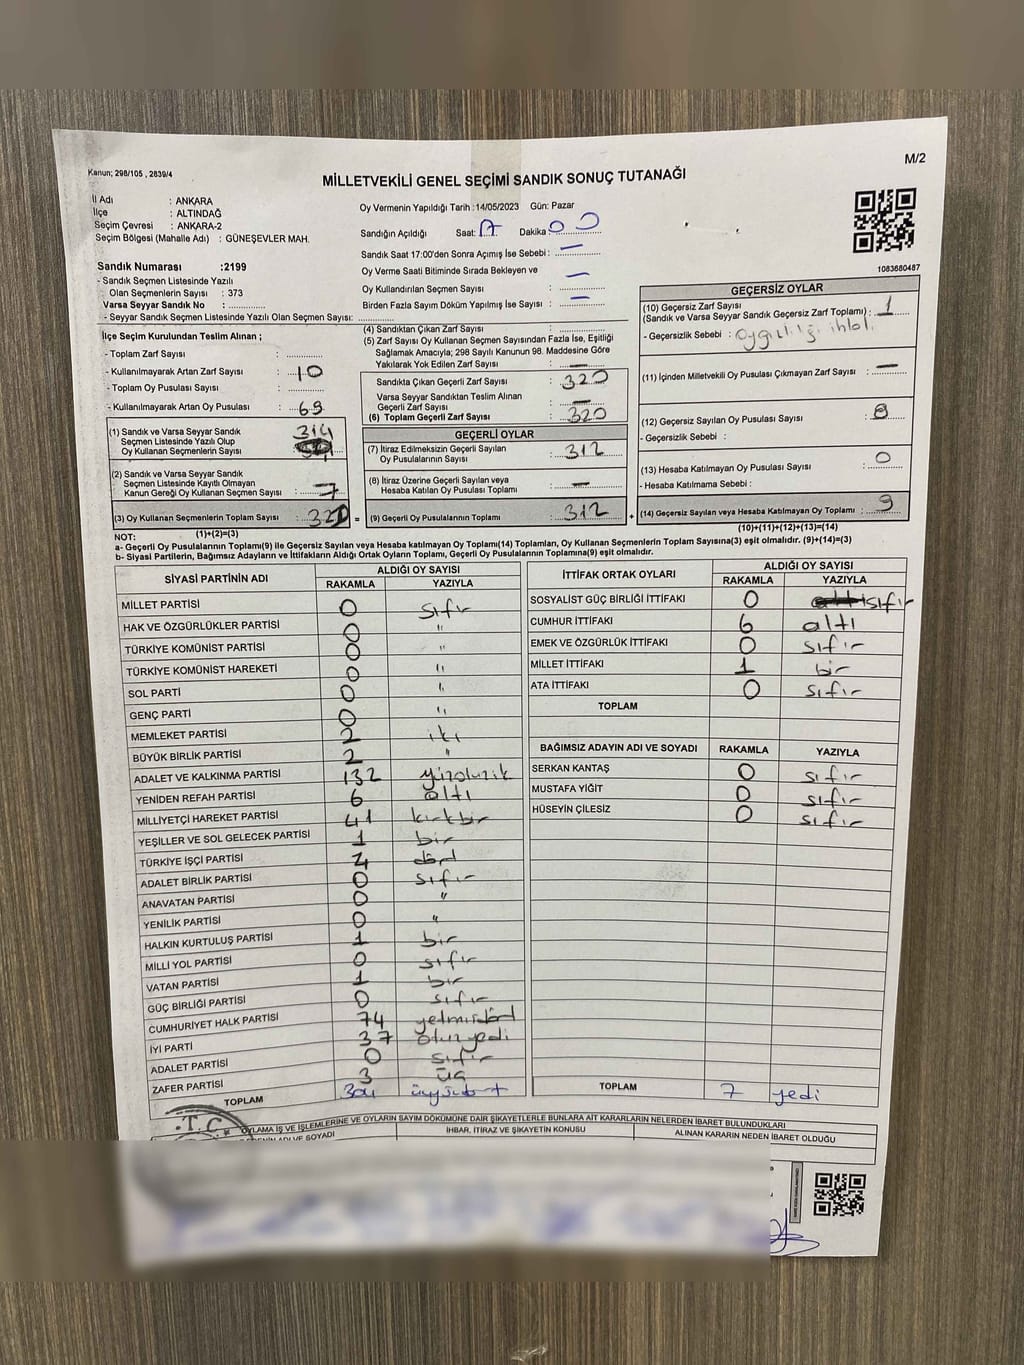 Kanun; 298/105 , 2839/4
M/2
MİLLETVEKİLİ GENEL SEÇİMİ SANDIK SONUÇ TUTANAĞI
İl Adı : ANKARA
İlçe : ALTINDAĞ
Seçim Çevresi : ANKARA-2
Seçim Bölgesi (Mahalle Adı) : GÜNEŞEVLER MAH.
Sandık Numarası :2199
- Sandık Seçmen Listesinde Yazılı
Olan Seçmenlerin Sayısı : 373
Varsa Seyyar Sandık No :
- Seyyar Sandık Seçmen Listesinde Yazılı Olan Seçmen Sayısı:
Oy Vermenin Yapıldığı Tarih :14/05/2023 Gün: Pazar
Sandığın Açıldığı Saat: 17 Dakika: 00
Sandık Saat 17:00'den Sonra Açımış İse Sebebi : —
Oy Verme Saati Bitiminde Sırada Bekleyen ve
Oy Kullandırılan Seçmen Sayısı : —
Birden Fazla Sayım Döküm Yapılmış İse Sayısı : —
1083680487
İlçe Seçim Kurulundan Teslim Alınan ;
- Toplam Zarf Sayısı :
- Kullanılmayarak Artan Zarf Sayısı : 10
- Toplam Oy Pusulası Sayısı :
- Kullanılmayarak Artan Oy Pusulası : 69
(1) Sandık ve Varsa Seyyar Sandık 314
Seçmen Listesinde Yazılı Olup
Oy Kullanan Seçmenlerin Sayısı :
(2) Sandık ve Varsa Seyyar Sandık
Seçmen Listesinde Kayıtlı Olmayan
Kanun Gereği Oy Kullanan Seçmen Sayısı : 7
(3) Oy Kullanan Seçmenlerin Toplam Sayısı : 321 =
(1)+(2)=(3)
(4) Sandıktan Çıkan Zarf Sayısı :
(5) Zarf Sayısı Oy Kullanan Seçmen Sayısından Fazla İse, Eşitliği
Sağlamak Amacıyla; 298 Sayılı Kanunun 98. Maddesine Göre
Yakılarak Yok Edilen Zarf Sayısı : —
Sandıkta Çıkan Geçerli Zarf Sayısı : 320
Varsa Seyyar Sandıktan Teslim Alınan
Geçerli Zarf Sayısı : —
(6) Toplam Geçerli Zarf Sayısı : 320
GEÇERLİ OYLAR
(7) İtiraz Edilmeksizin Geçerli Sayılan
Oy Pusulalarının Sayısı : 312
(8) İtiraz Üzerine Geçerli Sayılan veya
Hesaba Katılan Oy Pusulaları Toplamı : —
(9) Geçerli Oy Pusulalarının Toplamı : 312 +
GEÇERSİZ OYLAR
(10) Geçersiz Zarf Sayısı
(Sandık ve Varsa Seyyar Sandık Geçersiz Zarf Toplamı) : 1
- Geçersizlik Sebebi :
(11) İçinden Milletvekili Oy Pusulası Çıkmayan Zarf Sayısı : —
(12) Geçersiz Sayılan Oy Pusulası Sayısı : 8
- Geçersizlik Sebebi :
(13) Hesaba Katılmayan Oy Pusulası Sayısı : 0
- Hesaba Katılmama Sebebi :
(14) Geçersiz Sayılan veya Hesaba Katılmayan Oy Toplamı : 9
(10)+(11)+(12)+(13)=(14)
NOT:
a- Geçerli Oy Pusulalarının Toplamı(9) ile Geçersiz Sayılan veya Hesaba Katılmayan Oy Pusulası Toplamı(14) Toplamları, Oy Kullanan Seçmenlerin Toplam Sayısına(3) eşit olmalıdır. (9)+(14)=(3)
b- Siyasi Partilerin, Bağımsız Adayların ve İttifakların Aldığı Ortak Oyların Toplamı, Geçerli Oy Pusulalarının Toplamına(9) eşit olmalıdır.
SİYASİ PARTİNİN ADI ALDIĞI OY SAYISI
RAKAMLA YAZIYLA
MİLLET PARTİSİ 0 sıfır
HAK VE ÖZGÜRLÜKLER PARTİSİ 0 "
TÜRKİYE KOMÜNİST PARTİSİ 0 "
TÜRKİYE KOMÜNİST HAREKETİ 0 "
SOL PARTİ 0 "
GENÇ PARTİ 0 "
MEMLEKET PARTİSİ 2 iki
BÜYÜK BİRLİK PARTİSİ 2 "
ADALET VE KALKINMA PARTİSİ 132 yüzotuziki
YENİDEN REFAH PARTİSİ 6 altı
MİLLİYETÇİ HAREKET PARTİSİ 41 kırkbir
YEŞİLLER VE SOL GELECEK PARTİSİ 1 bir
TÜRKİYE İŞÇİ PARTİSİ 4 dört
ADALET BİRLİK PARTİSİ 0 sıfır
ANAVATAN PARTİSİ 0 "
YENİLİK PARTİSİ 0 "
HALKIN KURTULUŞ PARTİSİ 1 bir
MİLLİ YOL PARTİSİ 0 sıfır
VATAN PARTİSİ 1 bir
GÜÇ BİRLİĞİ PARTİSİ 0 sıfır
CUMHURİYET HALK PARTİSİ 74 yetmişdört
İYİ PARTİ 37 otuzyedi
ADALET PARTİSİ 0 sıfır
ZAFER PARTİSİ 3 üç
TOPLAM 304
İTTİFAK ORTAK OYLARI ALDIĞI OY SAYISI
RAKAMLA YAZIYLA
SOSYALİST GÜÇ BİRLİĞİ İTTİFAKI 0 sıfır
CUMHUR İTTİFAKI 6 altı
EMEK VE ÖZGÜRLÜK İTTİFAKI 0 sıfır
MİLLET İTTİFAKI 1 bir
ATA İTTİFAKI 0 sıfır
TOPLAM
BAĞIMSIZ ADAYIN ADI VE SOYADI RAKAMLA YAZIYLA
SERKAN KANTAŞ 0 sıfır
MUSTAFA YİĞİT 0 sıfır
HÜSEYİN ÇİLESİZ 0 sıfır
TOPLAM 7 yedi
T.C.
OYLAMA İŞ VE İŞLEMLERİNE VE OYLARIN SAYIM DÖKÜMÜNE DAİR ŞİKAYETLERLE BUNLARA AİT KARARLARIN NELERDEN İBARET BULUNDUKLARI
ADI VE SOYADI İHBAR, İTİRAZ VE ŞİKAYETİN KONUSU ALINAN KARARIN NEDEN İBARET OLDUĞU